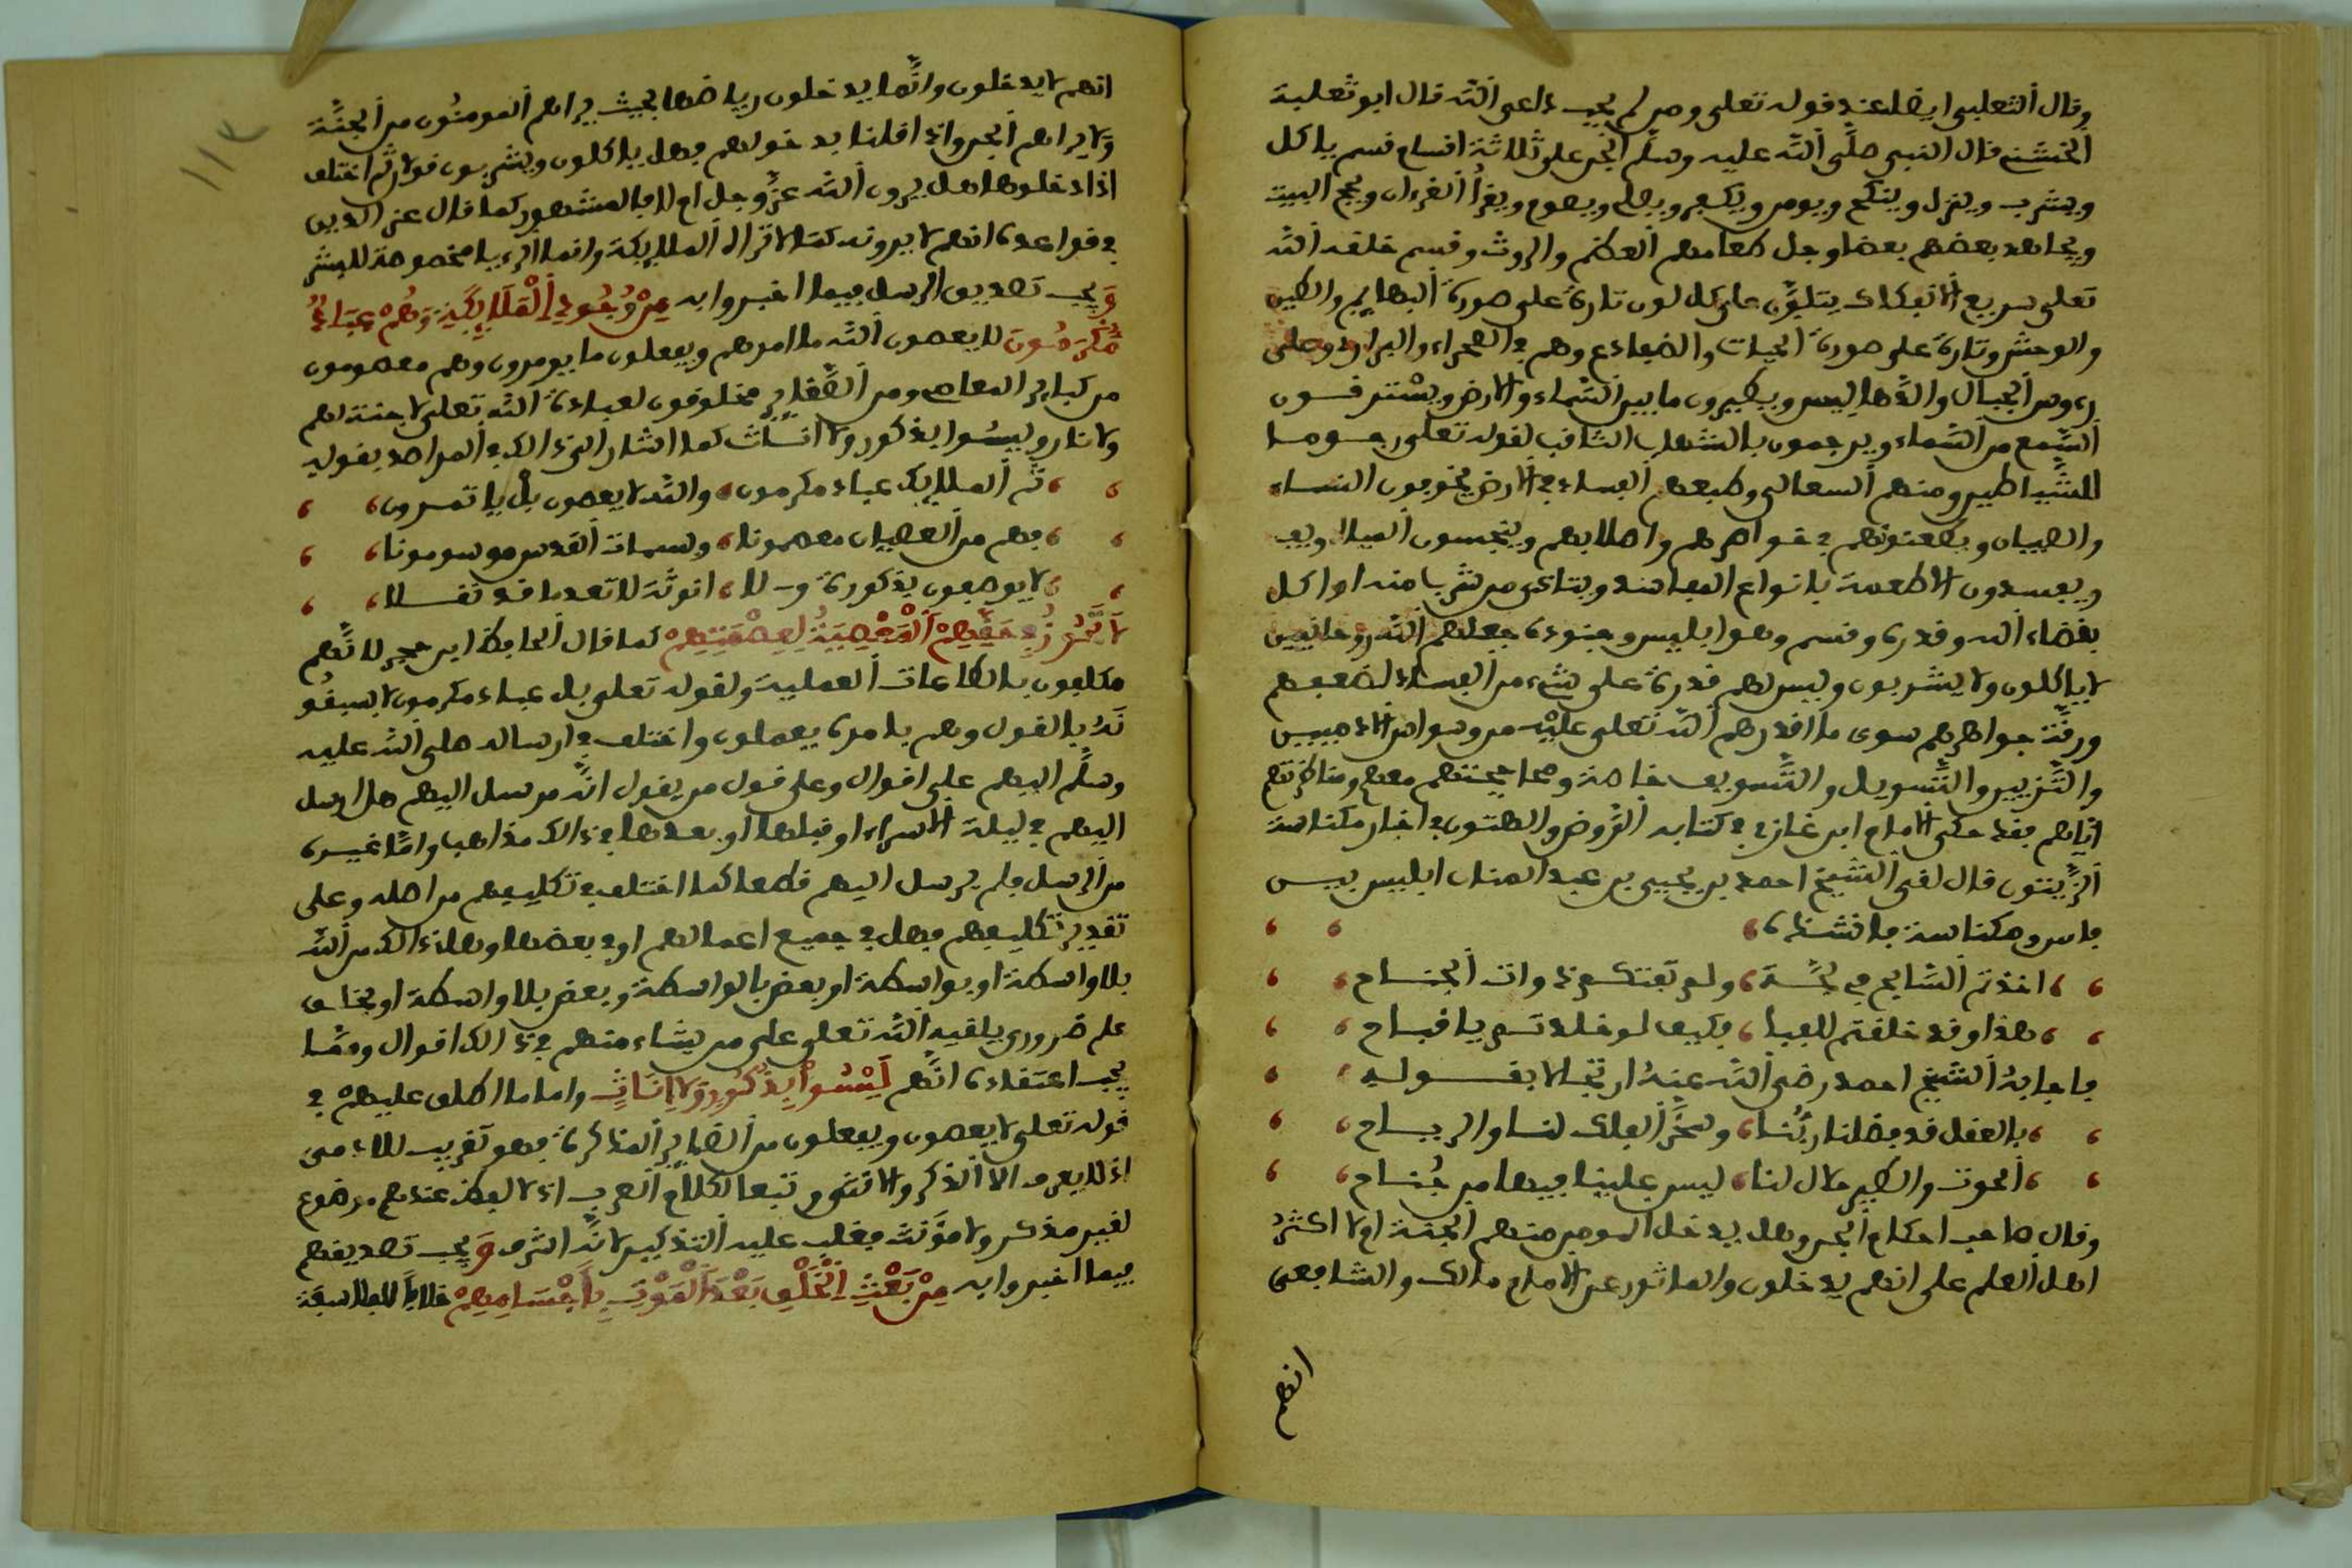 وقال الثعلبي ايضا عند قوله تعلى ومن لم يجب داعى الله قال ابو ثعلبة
الخشني قال النبي صلى الله عليه وسلم الجن على ثلاثة اقسام قسم ياكل
ويشرب وينزل وينكح ويومن ويكفر ويصلي ويصوم ويقرأ القرءان ويحج البيت
ويجاهد بعضهم بعضا وجل طعامهم العظم والروث وقسم خلقه الله
تعلى سريع الانفكاك يتلون على كل لون تارة على صورة البهايم والطير
والوحش وتارة على صورة الحيات والضفادع وهم في الصحراء والبراري وعلى
رءوس الجبال والدهاليس ويطيرون ما بين السماء والارض ويسترقون
السمع من السماء ويرجمون بالشهاب الثاقب لقوله تعلى رجوما
للشياطين ومنهم السعالى وطبعهم الفساد في الارض يخوفون النساء
والصبيان ويطعنونهم في خواصرهم واصلابهم وينجسون المياه
ويفسدون الاطعمة بانواع المفاسد ويتاذى من شرب منه او اكل
بقضاء الله وقدره وقسم وهو ابليس وجنوده جعلهم الله روحانيين
لا ياكلون ولا يشربون وليس لهم قدرة على شيء من الفساد لضعفهم
ورقة جواهرهم سوى ما اقدرهم الله تعلى عليه من وسواس الادميين
والتزيين والتسويل والتسويف خاصة ومحاججتهم معهم ومناظرتهم
اياهم فقد حكى الامام ابن غازي في كتابه الروض الهتون في اخبار مكناسة
الزيتون قال لقي الشيخ احمد بن يحيى بن عبد المنان ابليس بين
فاس ومكناسة فانشده
اخذتم السابح في لجة ولم تفتكم ذوات الجناح
هذا وقد خلقتم للفنا فكيف لو خلدتم يا قباح
فاجابه الشيخ احمد رضي الله عنه ارتجالا بقوله
بالعقل قد فضلنا ربنا وسخر الفلك لنا والرياح
الحوت والطير حلال لنا ليس علينا فيهما من جناح
وقال صاحب احكام الجن وهل يدخل المومن منهم الجنة ام لا اكثر
اهل العلم على انهم يدخلون والماثور عن الامام مالك والشافعى
انهم
انهم لا يدخلون وانما يدخلون رياضها بحيث يراهم المومنون من الجنة
ولا يراهم الجن واذا قلنا بدخولهم فهل ياكلون ويشربون قولان ثم اختلف
اذا دخلوها هل يرون الله عز وجل ام لا فالمشهور كما قال عز الدين
في قواعده انهم لا يرونه كما لا تراه الملايكة وانما الرءيا مخصوصة للبشر
و يجب تصديق الرسل فيما اخبروا به من وجود الملايكة وهم عباد
مكرمون لا يعصون الله ما امرهم ويفعلون ما يومرون وهم معصومون
من كباير المعاصي ومن الصغاير مخلوقون لعبادة الله تعلى لا جنة لهم
ولا نار وليسوا بذكور ولا اناث كما اشار الى ذالك في المراصد بقوله
ثم الملايك عباد مكرمون والله لا يعصون بل ياتمرون
فهم من العصيان معصمونا وسمات القدس موسومونا
لا يوصفون بذكورة و لا انوثة لا تعد ما قد نقلا
لا تجوز في حقهم المعصية لعصمتهم كما قال الحافظ ابن حجر لانهم
مكلفون بالطاعات العملية ولقوله تعلى بل عباد مكرمون لا يسبقو
نه بالقول وهم بامره يعملون واختلف في ارساله صلى الله عليه
وسلم اليهم على اقوال وعلى قول من يقول انه مرسل اليهم هل ارسل
اليهم في ليلة الاسراء او قبلها او بعدها في ذالك مذاهب واما غيره
من الرسل فلم يرسل اليهم قطعا كما اختلف في تكليفهم من اصله وعلى
تقدير تكليفهم فهل في جميع اعمالهم او في بعضها وهل ذالك من الله
بلا واسطة او بواسطة او بعض بالواسطة وبعض بلا واسطة او بخلق
علم ضروري يلقيه الله تعلى على من يشاء منهم في ذالك اقوال ومما
يجب اعتقاده انهم ليسوا بذكور ولا اناث واما ما اطلق عليهم في
قوله تعلى لا يعصون ويفعلون من الضماير المذكرة فهو تقريب للادمى
اذ لا يعرف الا الذكر والانثى تبعا لكلام العرب اذ لا لفظ عندهم موضوع
لغير مذكر ولا مؤنث فغلب عليه التذكير لانه اشرف و يجب تصديقهم
فيما اخبروا به من بعث الخلق بعد الموت باجسامهم خلافا للفلاسفة